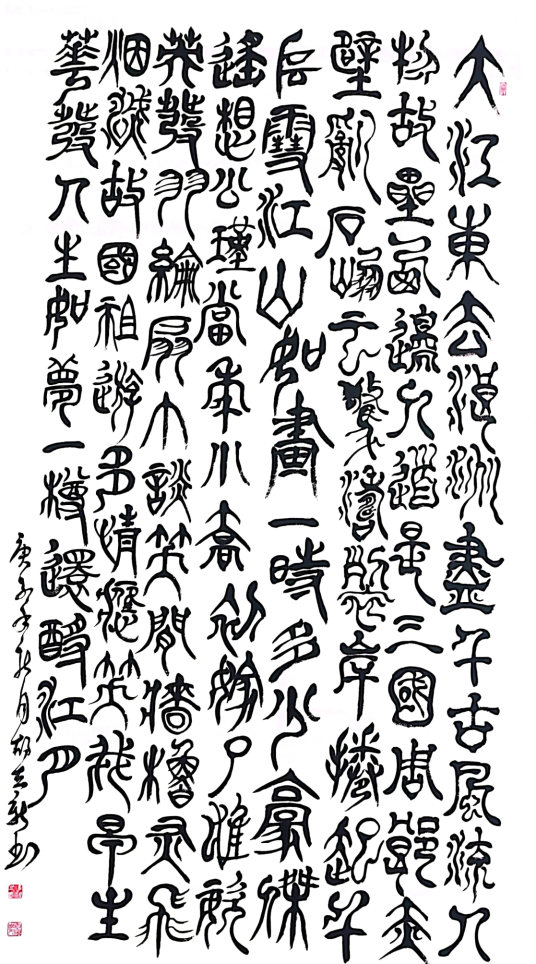 大江東去浪淘盡千古風流人
物故壘西邊人道是三國周郎赤
壁亂石崩云驚濤裂岸捲起千
堆雪江山如畫一時多少豪傑
遙想公瑾當年小喬初嫁了雄姿
英發羽綸扇巾談笑間檣櫓灰飛
烟滅故國神遊多情應笑我早生
華發人生如夢一樽還酹江月
庚子年秋月